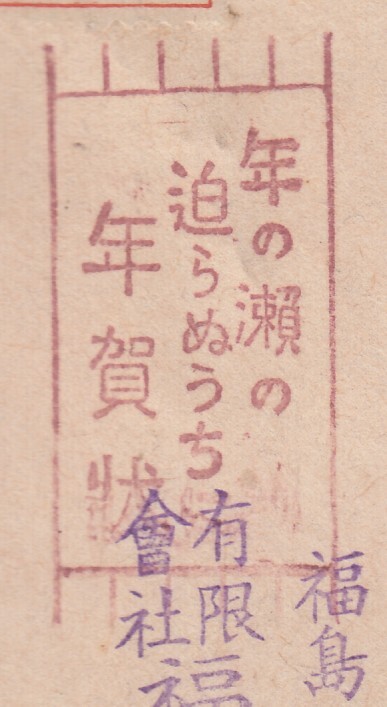 年の瀬の
迫らぬうち
年賀状
福島
有限
會社
福